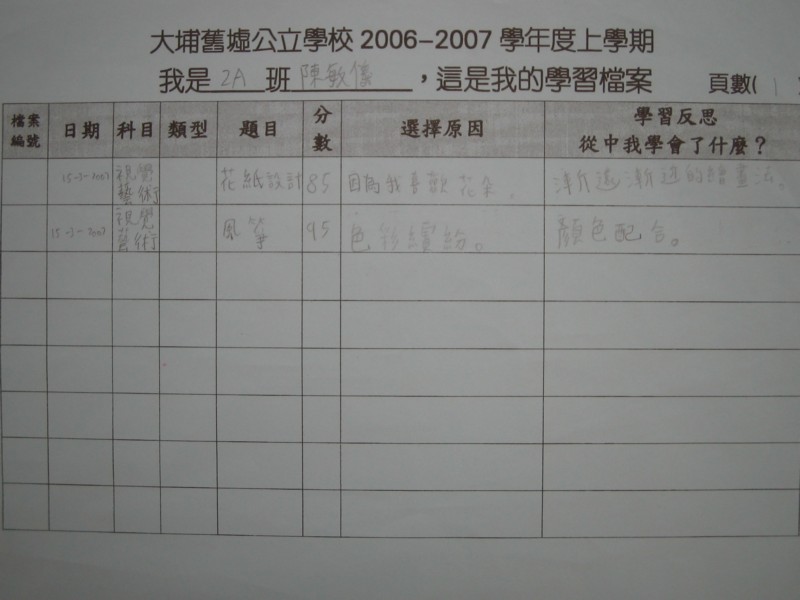 大埔舊墟公立學校 2006-2007 學年度上學期
我是 2A 班 陳敏儀 ，這是我的學習檔案 頁數( 1
檔案編號 日期 科目 類型 題目 分數 選擇原因 學習反思 從中我學會了什麼？
15-3-2007 視覺藝術 花紙設計 85 因為我喜歡花朵。 漸遠漸近的繪畫法。
15-3-2007 視覺藝術 風箏 95 色彩繽紛。 顏色配合。